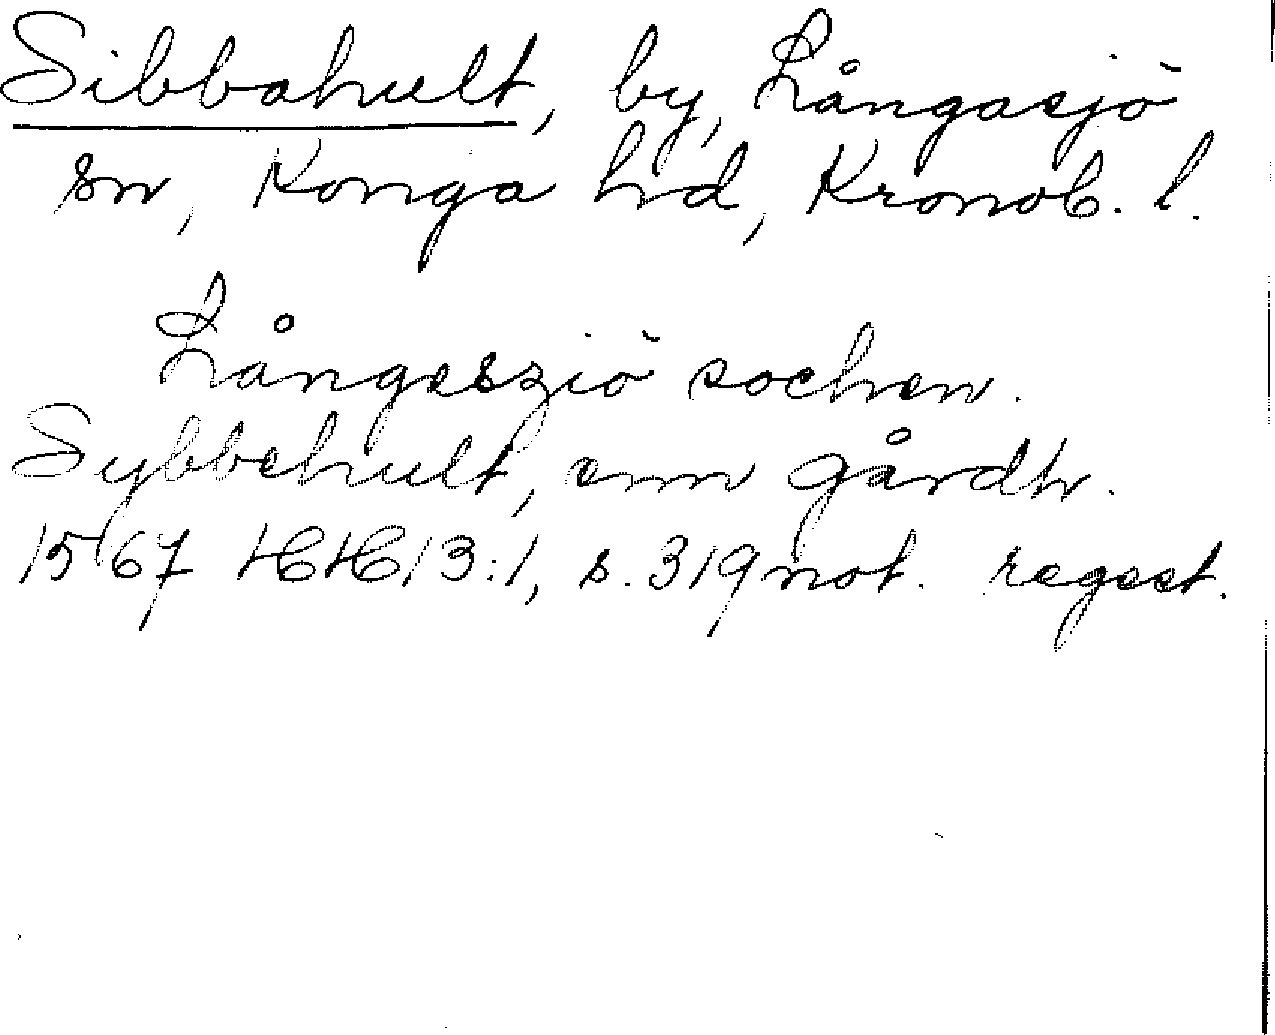 Sibbahult, by, Långasjö
sn, Konga hd, Kronob. l.
Långesziö sochen.
Sybbehult, enn gårdh.
1567 HH 13:1, s. 319 not. regest.